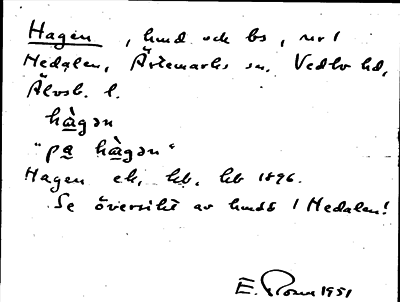 Hagen, hmd och bs, nr 1
Medalen, Ärtemarks sn. Vedbo hd,
Älvsb. l.
hàgən
"pa hàgən"
Hagen ek, kb, kb 1896.
Se översikt av hmd 1 Medalen!
E. Rosen 1951